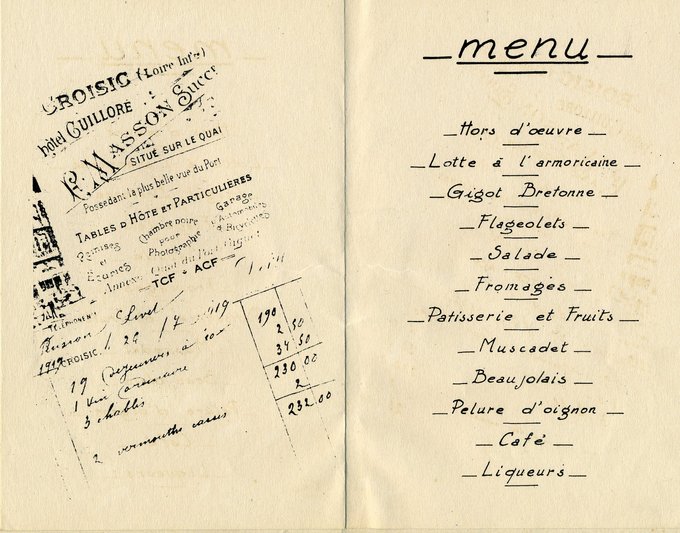 CROISIC (Loire Infre)
hôtel GUILLORE
E. MASSON Succr
SITUÉ SUR LE QUAI
Possedant la plus belle vue du Port
TABLES D'HÔTE ET PARTICULIÈRES
Remises et Écuries
Chambre noire pour Photographie
Garage d'Automobiles & Bicyclettes
Annexe Quai du Port
TCF - ACF
TÉLÉPHONE
CROISIC, 26 / 7 1919
19 Dejeuners à 10x 190
1 vin ordinaire 2 50
3 chablis 37 50
230,00
2 vermouths cassis 2
232,00
menu
Hors d'œuvre
Lotte à l'armoricaine
Gigot Bretonne
Flageolets
Salade
Fromages
Patisserie et Fruits
Muscadet
Beaujolais
Pelure d'oignon
Café
Liqueurs